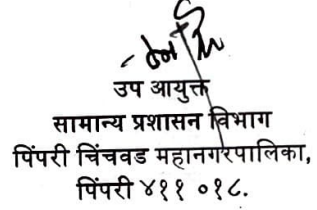 उप आयुक्त
सामान्य प्रशासन विभाग
पिंपरी चिंचवड महानगरपालिका,
पिंपरी ४११ ०१८.